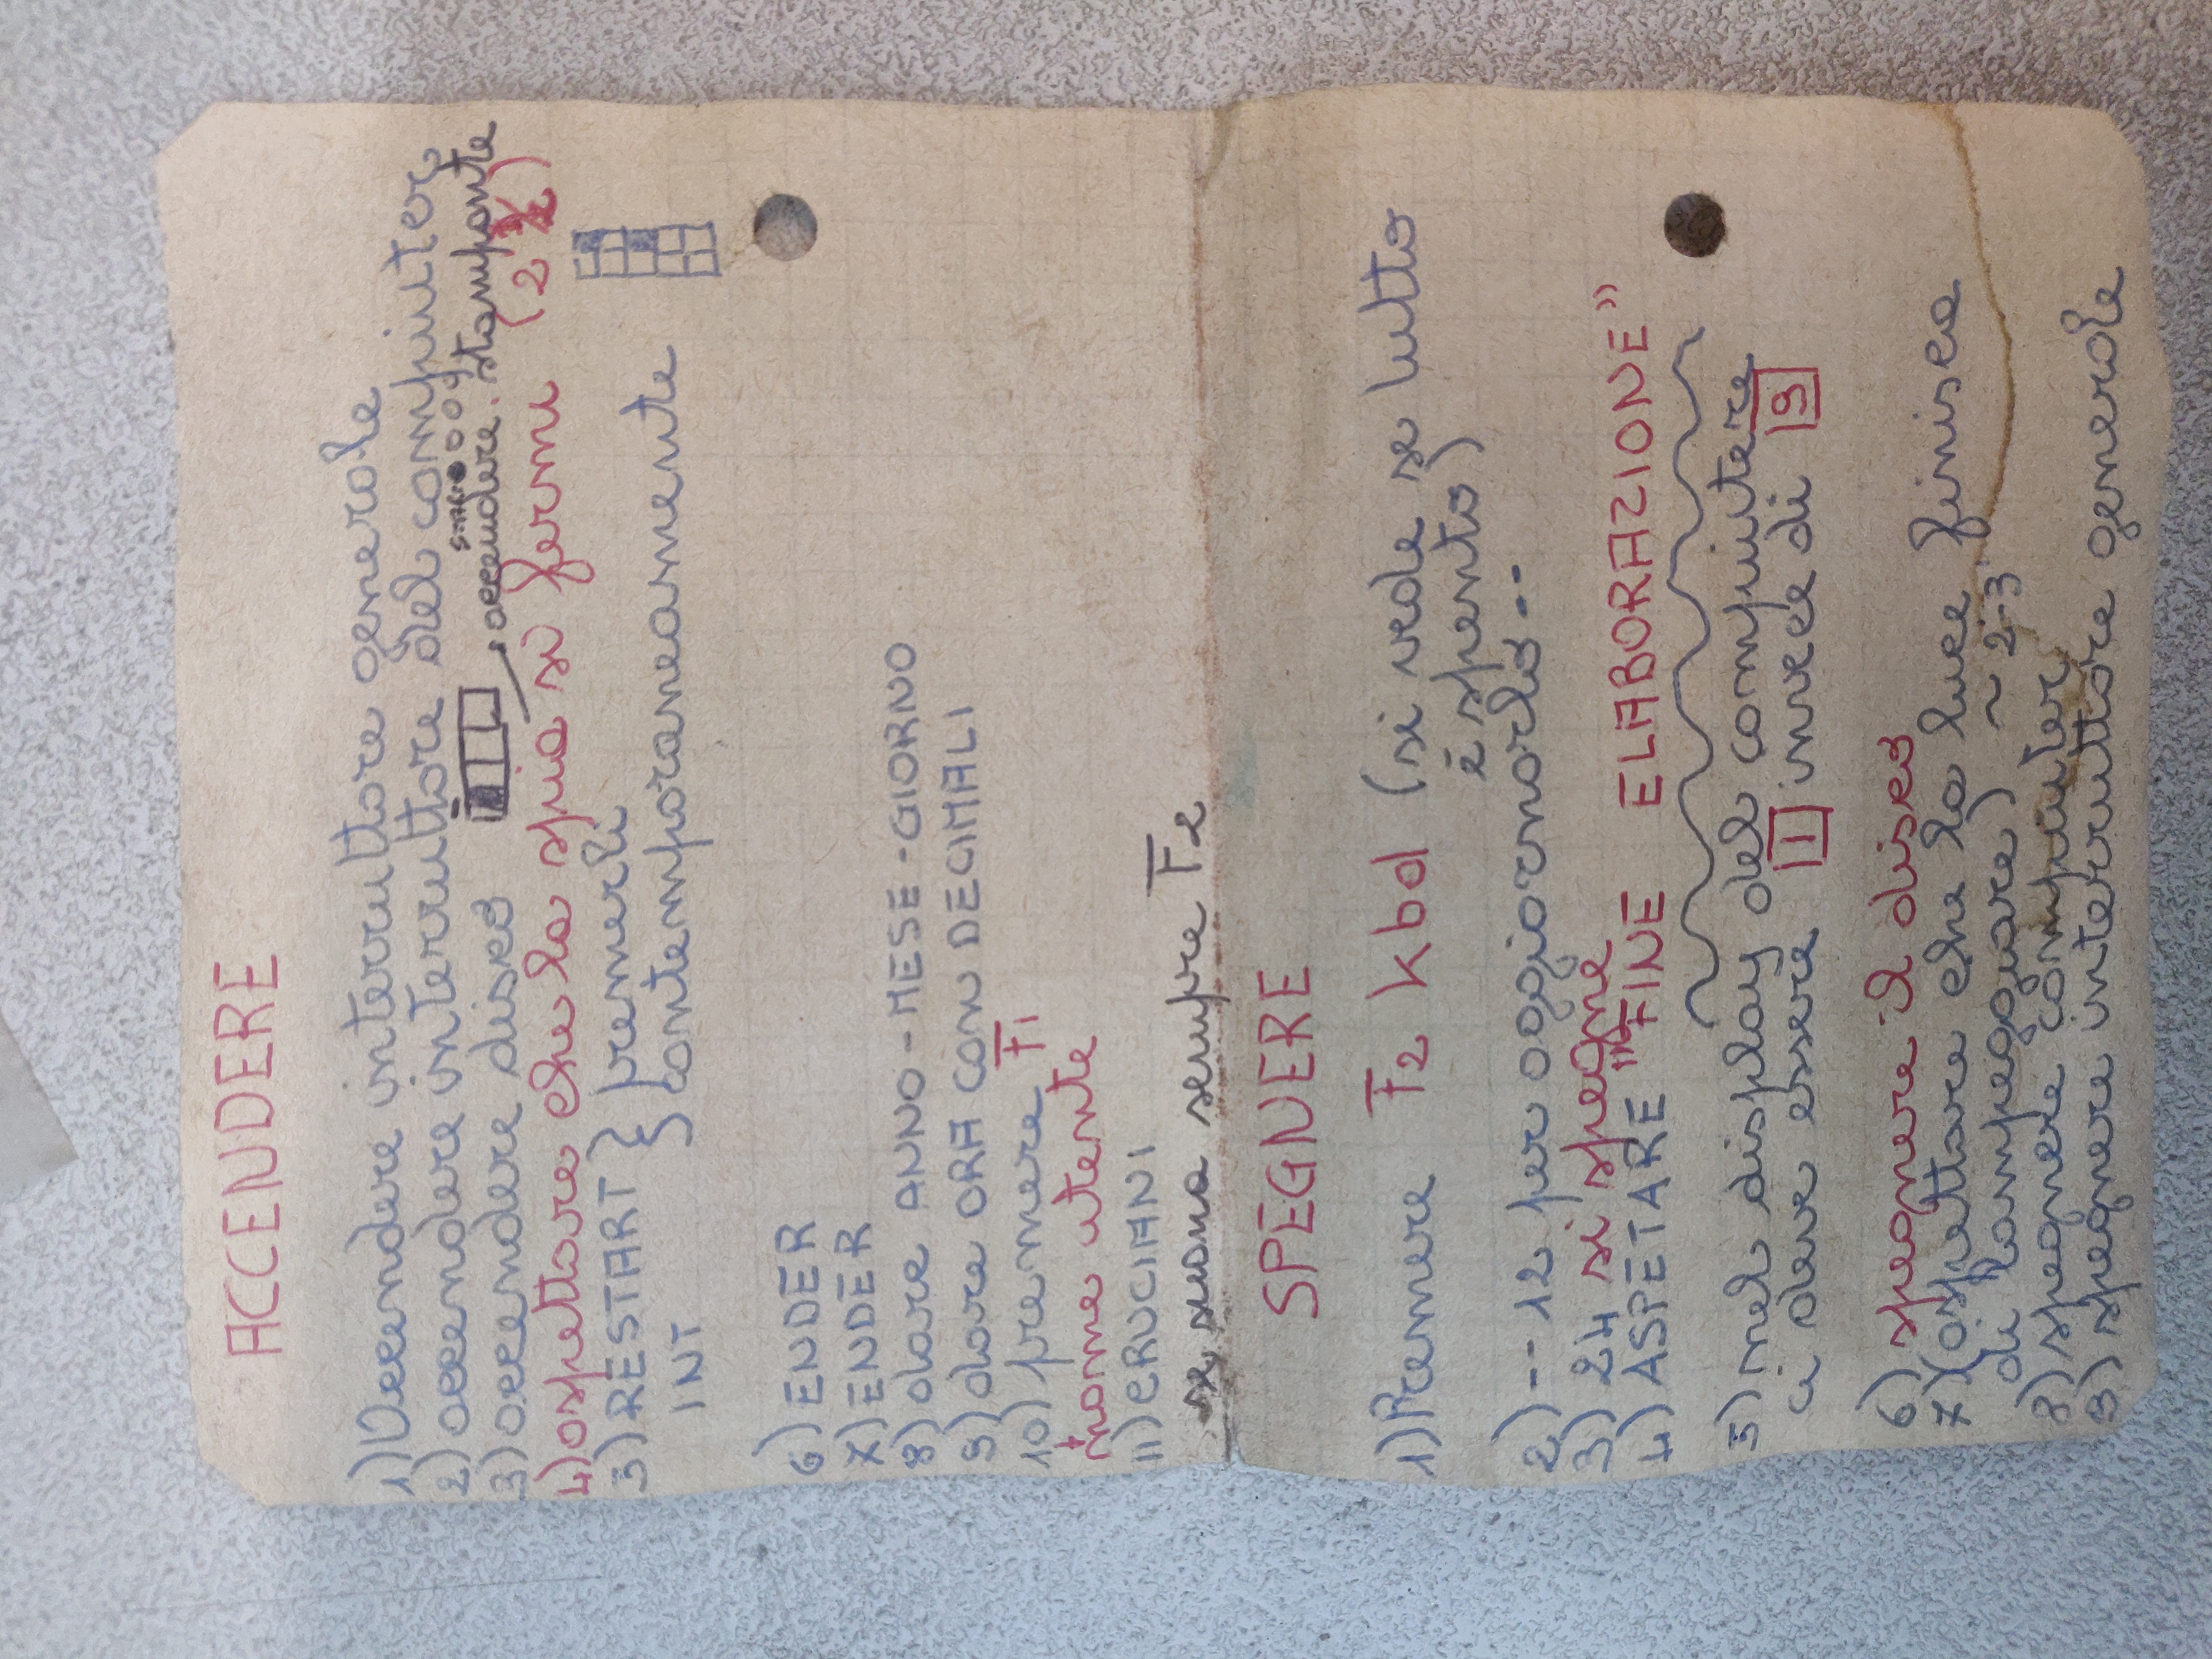 ACCENDERE
1) Accendere interruttore generale
2) accendere interruttore del computer
3) accendere disco
accendere stampante
4) aspettare che la spia si fermi (2
5) RESTART } premerli
INT } contemporaneamente
6) ENDER
7) ENDER
8) dare ANNO-MESE-GIORNO
9) dare ORA CON DECIMALI
10) premere F1
nome utente
11) CRUCIANI
se suona sempre F2
SPEGNERE
1) Premere F2 kbd (si vede se tutto
è spento)
2) -- 12 per aggiornarlo---
3) 24 si spegne
4) ASPETARE "FINE ELABORAZIONE"
5) nel display del computere
ci deve essere 1 invece di 9
6) spegnere il disco
7) (aspettare che la luce finisca
di lampeggiare) ~ 2-3'
8) spegnere computer
9) spegnere interruttore generale